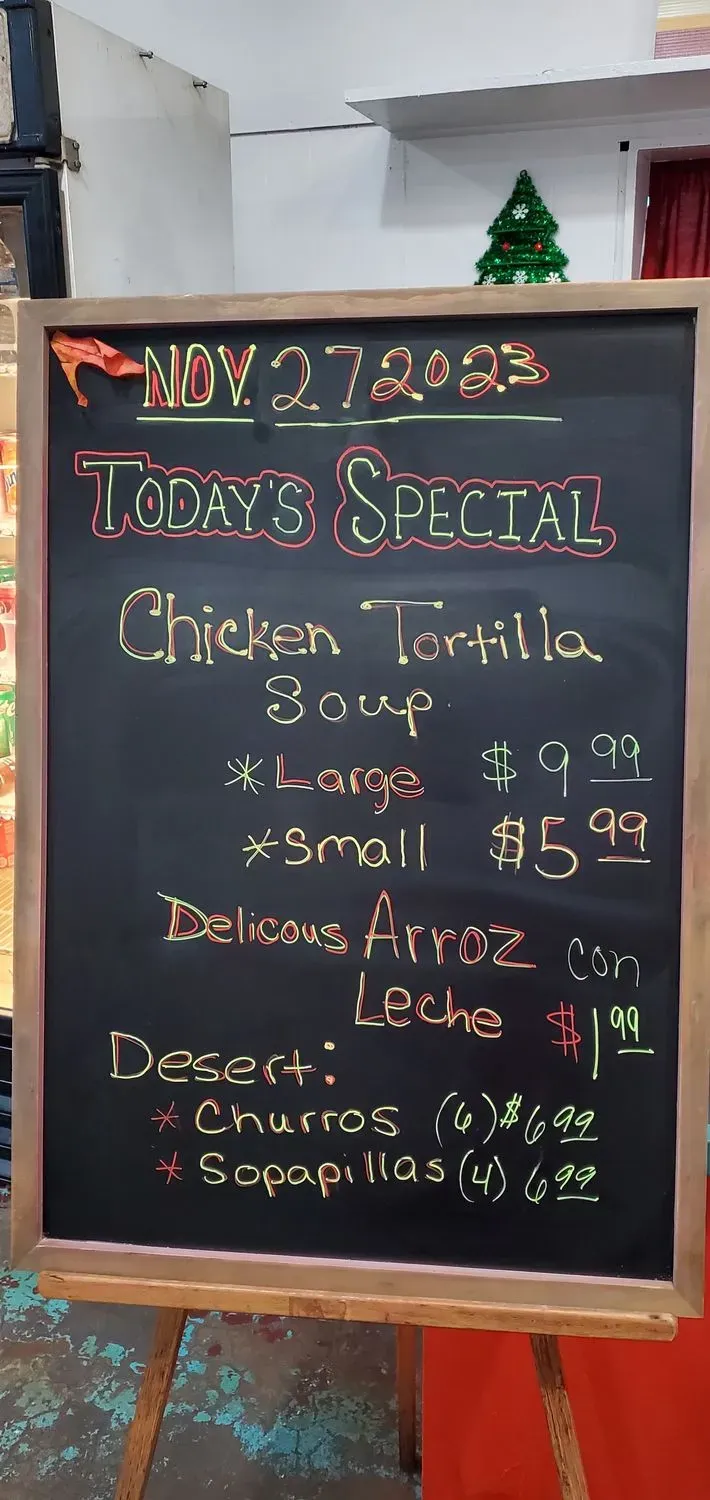 NOV. 27 2023
TODAY'S SPECIAL
Chicken Tortilla
Soup
* Large $9.99
* Small $5.99
Delicous Arroz con
Leche $1.99
Desert:
* Churros (6) $6.99
* Sopapillas (4) 6.99